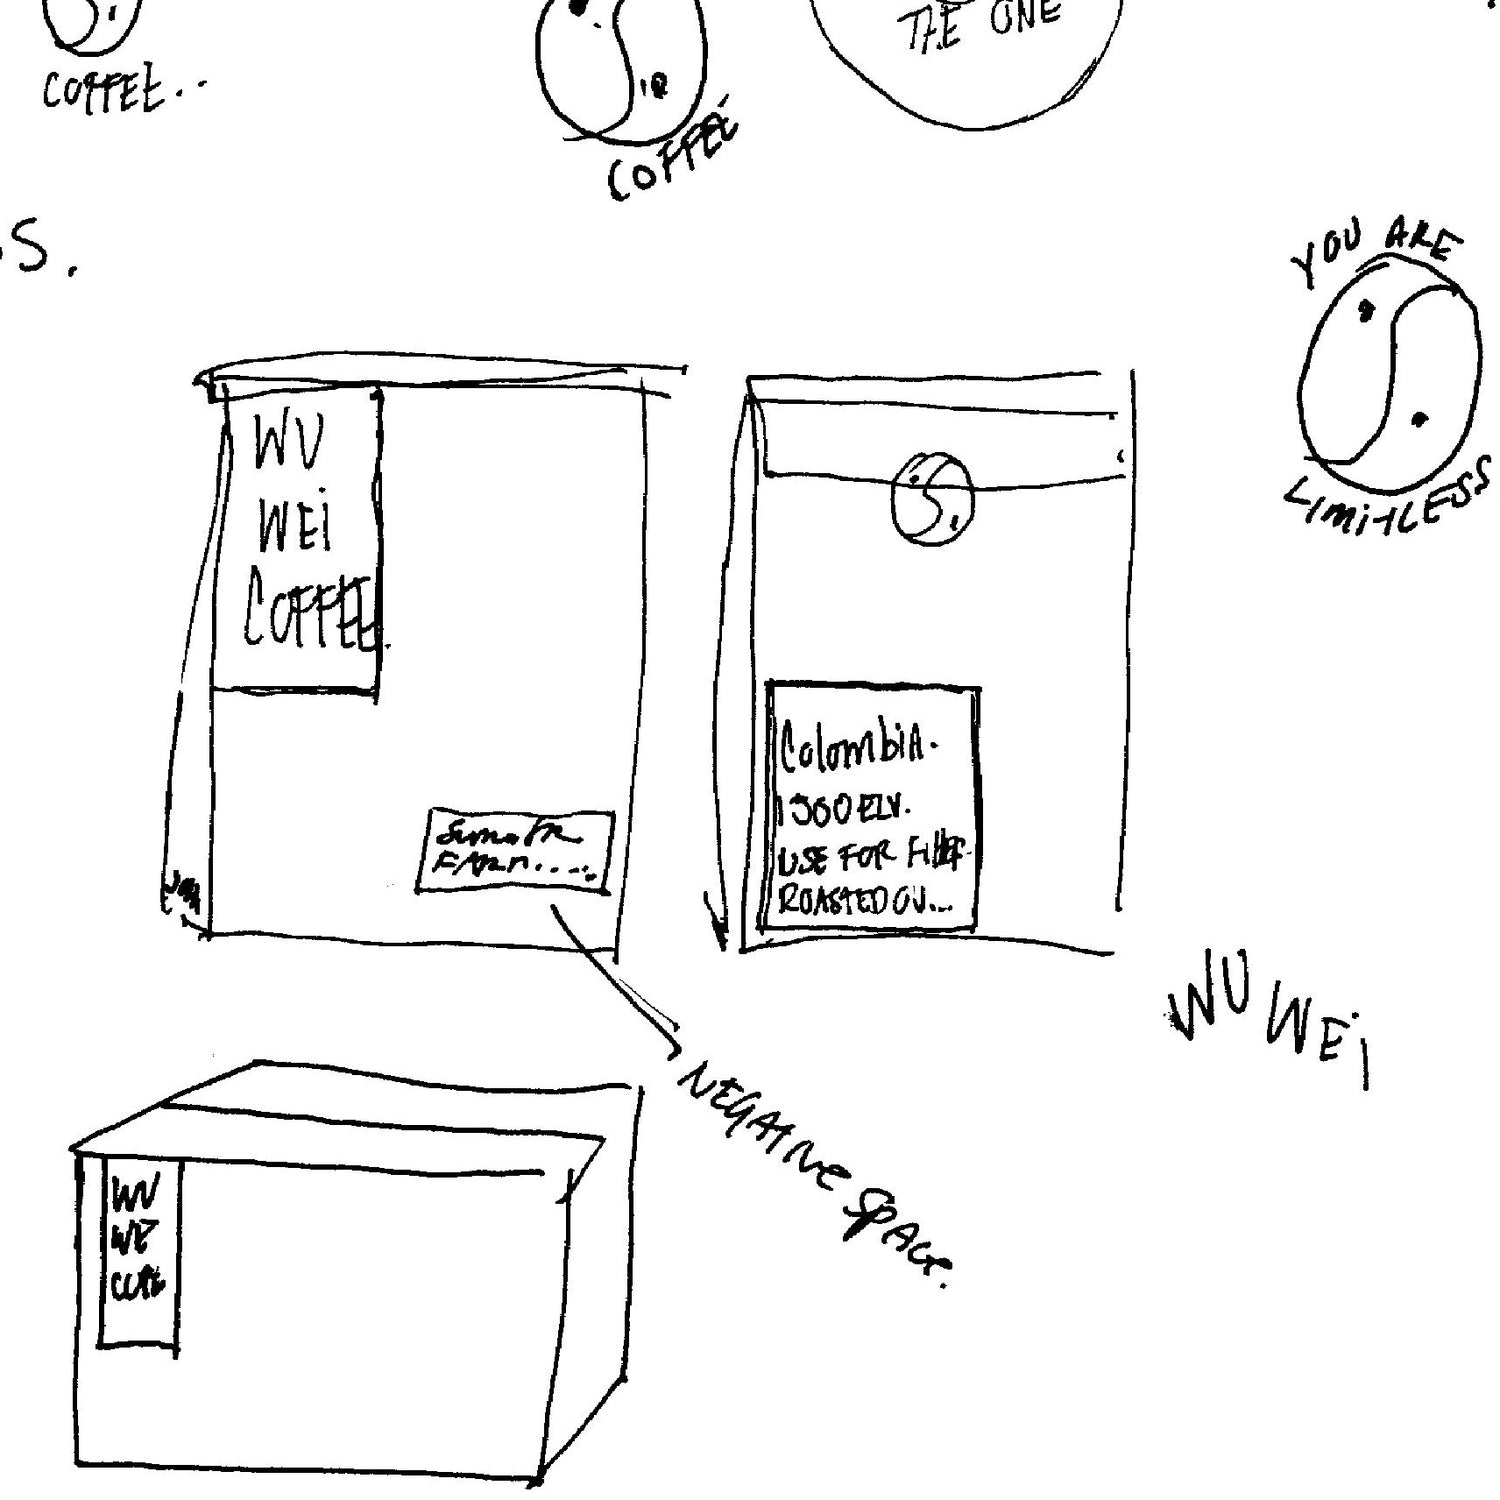 COFFEE..
COFFEE
THE ONE
S.
YOU ARE
LIMITLESS
WU
WEi
COFFEE.
SUMATRA
FARM.....
ColombiA.
1300 ELV.
USE FOR
ROASTED ON...
WU WEi
NEGATIVE SPACE.
WU
WE